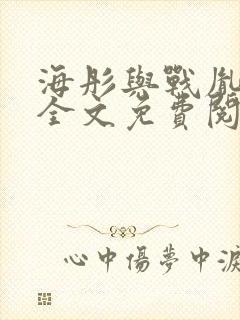 海彤與戰胤
全文免費閱
心中傷夢中淚